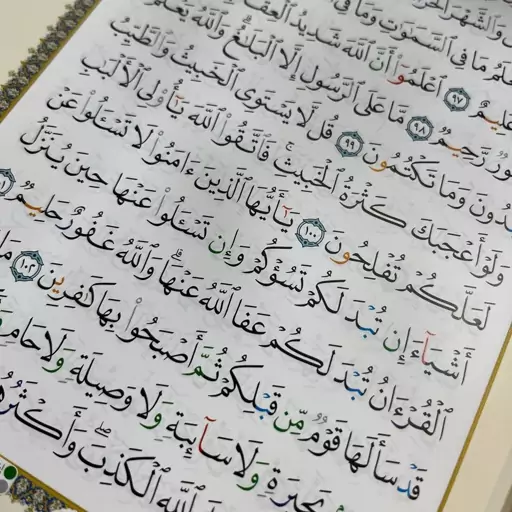 وَٱلشَّهْرَ ٱلْحَرَ
يَعْلَمُ مَا فِى ٱلسَّمَٰوَٰتِ وَمَا فِى
عَلِيمٌ ٩٧ ٱعْلَمُوٓا۟ أَنَّ ٱللَّهَ شَدِيدُ ٱلْعِقَ
غَفُورٌ رَّحِيمٌ ٩٨ مَّا عَلَى ٱلرَّسُولِ إِلَّا ٱلْبَلَٰغُ ۗ وَٱللَّهُ يَعْلَمُ
تُبْدُونَ وَمَا تَكْتُمُونَ ٩٩ قُل لَّا يَسْتَوِى ٱلْخَبِيثُ وَٱلطَّيِّبُ
وَلَوْ أَعْجَبَكَ كَثْرَةُ ٱلْخَبِيثِ ۚ فَٱتَّقُوا۟ ٱللَّهَ يَٰٓأُو۟لِى ٱلْأَلْبَٰبِ
لَعَلَّكُمْ تُفْلِحُونَ ١٠٠ يَٰٓأَيُّهَا ٱلَّذِينَ ءَامَنُوا۟ لَا تَسْـَٔلُوا۟ عَنْ
أَشْيَآءَ إِن تُبْدَ لَكُمْ تَسُؤْكُمْ وَإِن تَسْـَٔلُوا۟ عَنْهَا حِينَ يُنَزَّلُ
ٱلْقُرْءَانُ تُبْدَ لَكُمْ عَفَا ٱللَّهُ عَنْهَا ۗ وَٱللَّهُ غَفُورٌ حَلِيمٌ
قَدْ سَأَلَهَا قَوْمٌ مِّن قَبْلِكُمْ ثُمَّ أَصْبَحُوا۟ بِهَا كَٰفِرِينَ ١٠٢ مَا
بَحِيرَةٍ وَلَا سَآئِبَةٍ وَلَا وَصِيلَةٍ وَلَا حَامٍ
ٱللَّهِ ٱلْكَذِبَ ۖ وَأَكْثَرُهُ